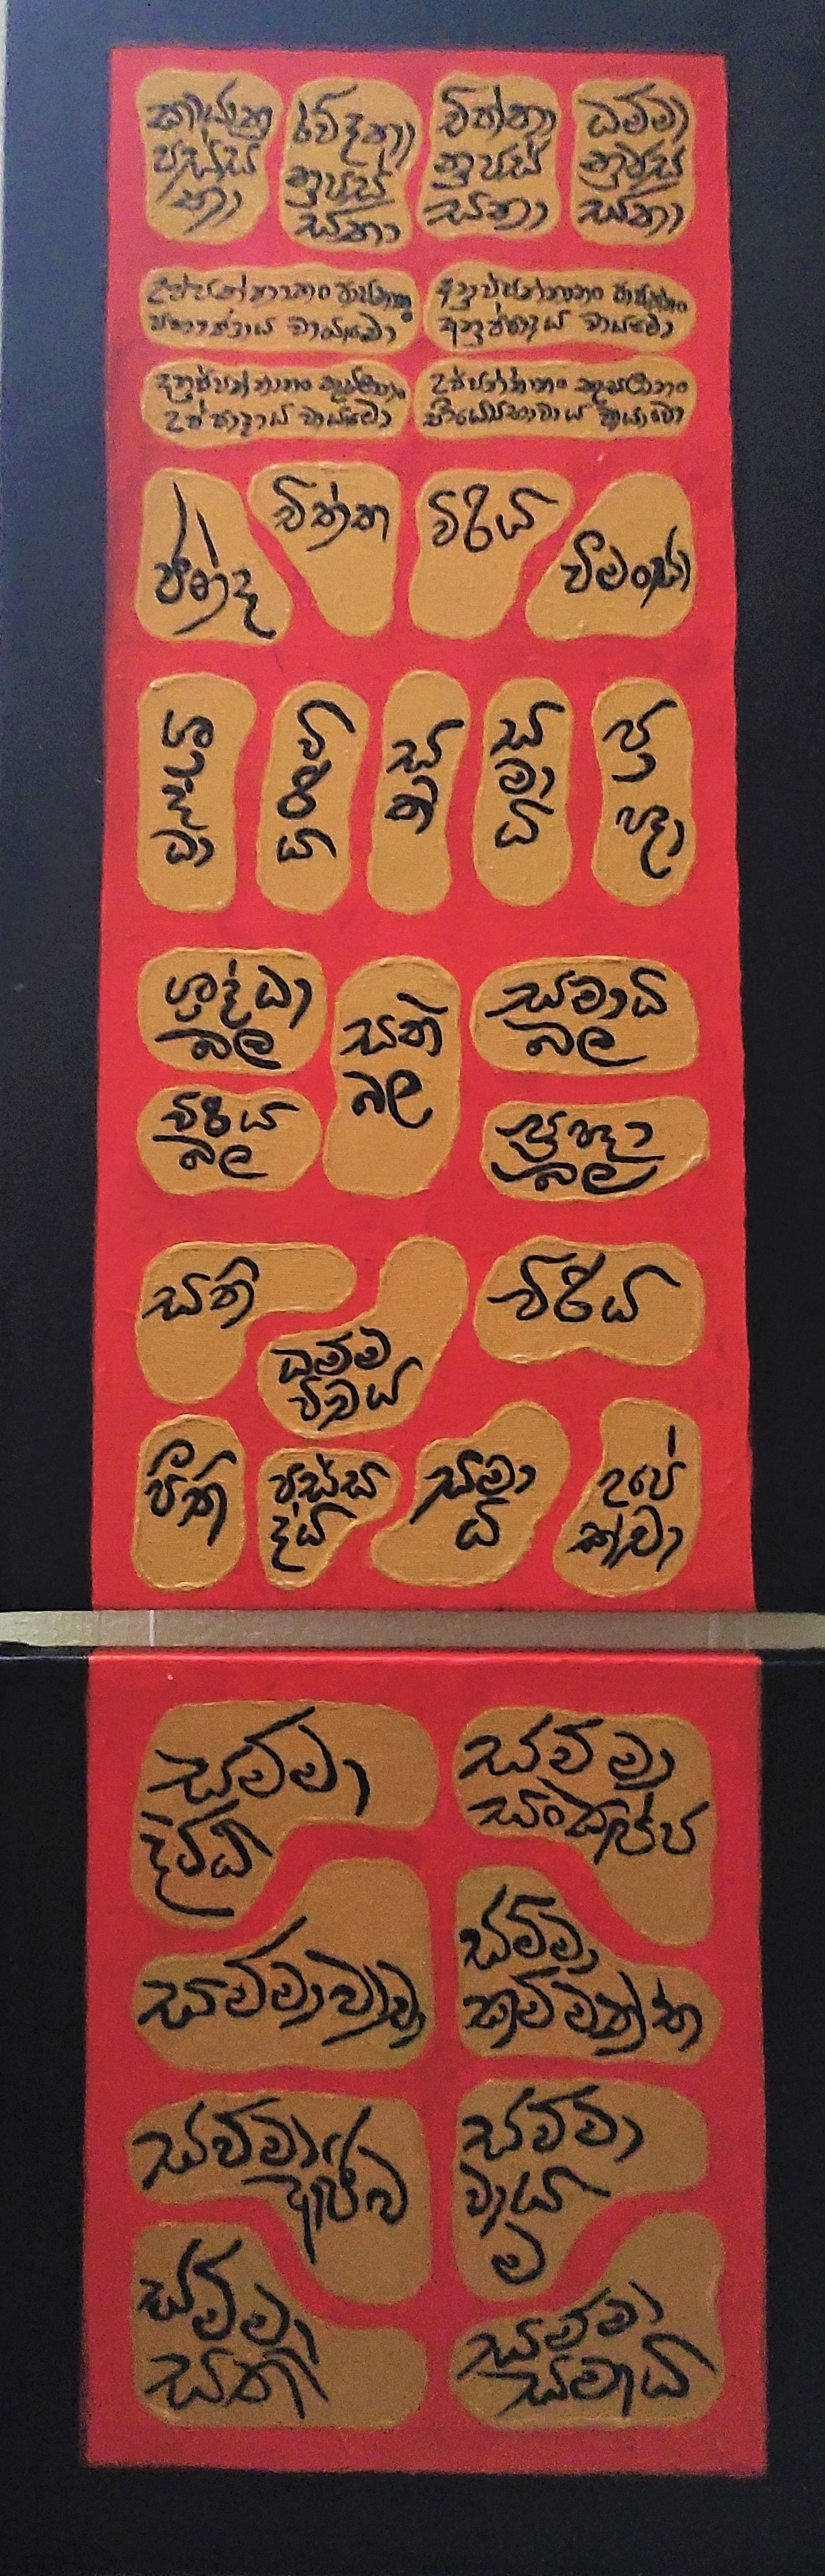 කායානු
පස්ස
නා
වේදනා
නුපස්
සනා
චිත්තා
නුපස්
සනා
ධම්මා
නුපස්
සනා
උප්පන්නානං පාපකානං
පහානාය වායාමෝ
අනුප්පන්නානං පාපකානං
අනුප්පාදාය වායාමෝ
අනුප්පන්නානං කුසලානං
උප්පාදාය වායාමෝ
උප්පන්නානං කුසලානං
භියෝභාවාය වායාමෝ
ඡන්ද
චිත්ත
විරිය
වීමංසා
ශ්‍ර
ද්
ධා
වි
රි
ය
ස
ති
ස
මා
ධි
ප්‍ර
ඥා
ශ්‍රද්ධා
බල
විරිය
බල
සති
බල
සමාධි
බල
ප්‍රඥා
බල
සති
ධම්ම
විචය
විරිය
පීති
පස්ස
ද්ධි
සමා
ධි
උපේ
ක්ඛා
සම්මා
දිට්ඨි
සම්මා
සංකප්ප
සම්මාවාචා
සම්මා
කම්මන්ත
සම්මා
ආජීව
සම්මා
වායා
ම
සම්මා
සති
සම්මා
සමාධි